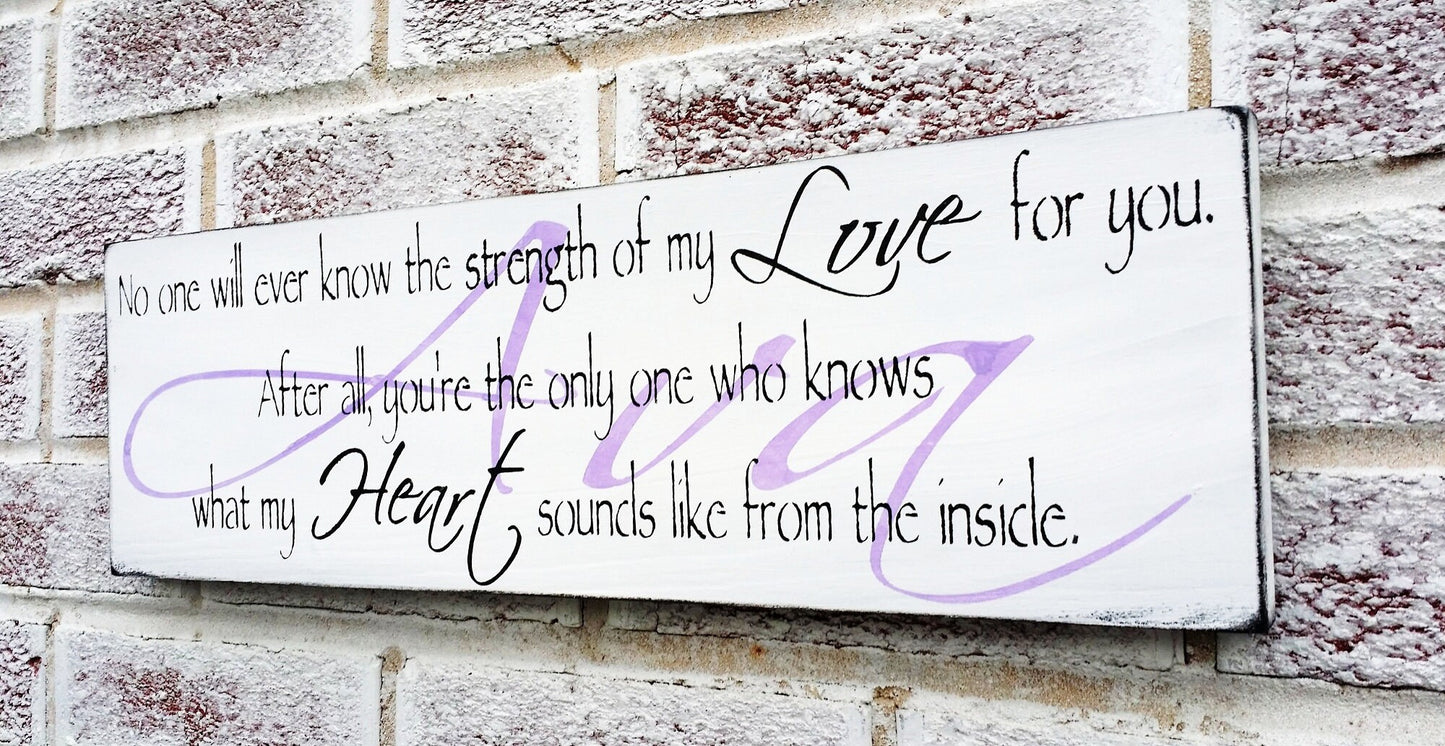 No one will ever know the strength of my Love for you.
After all, you're the only one who knows
what my Heart sounds like from the inside.
Ava